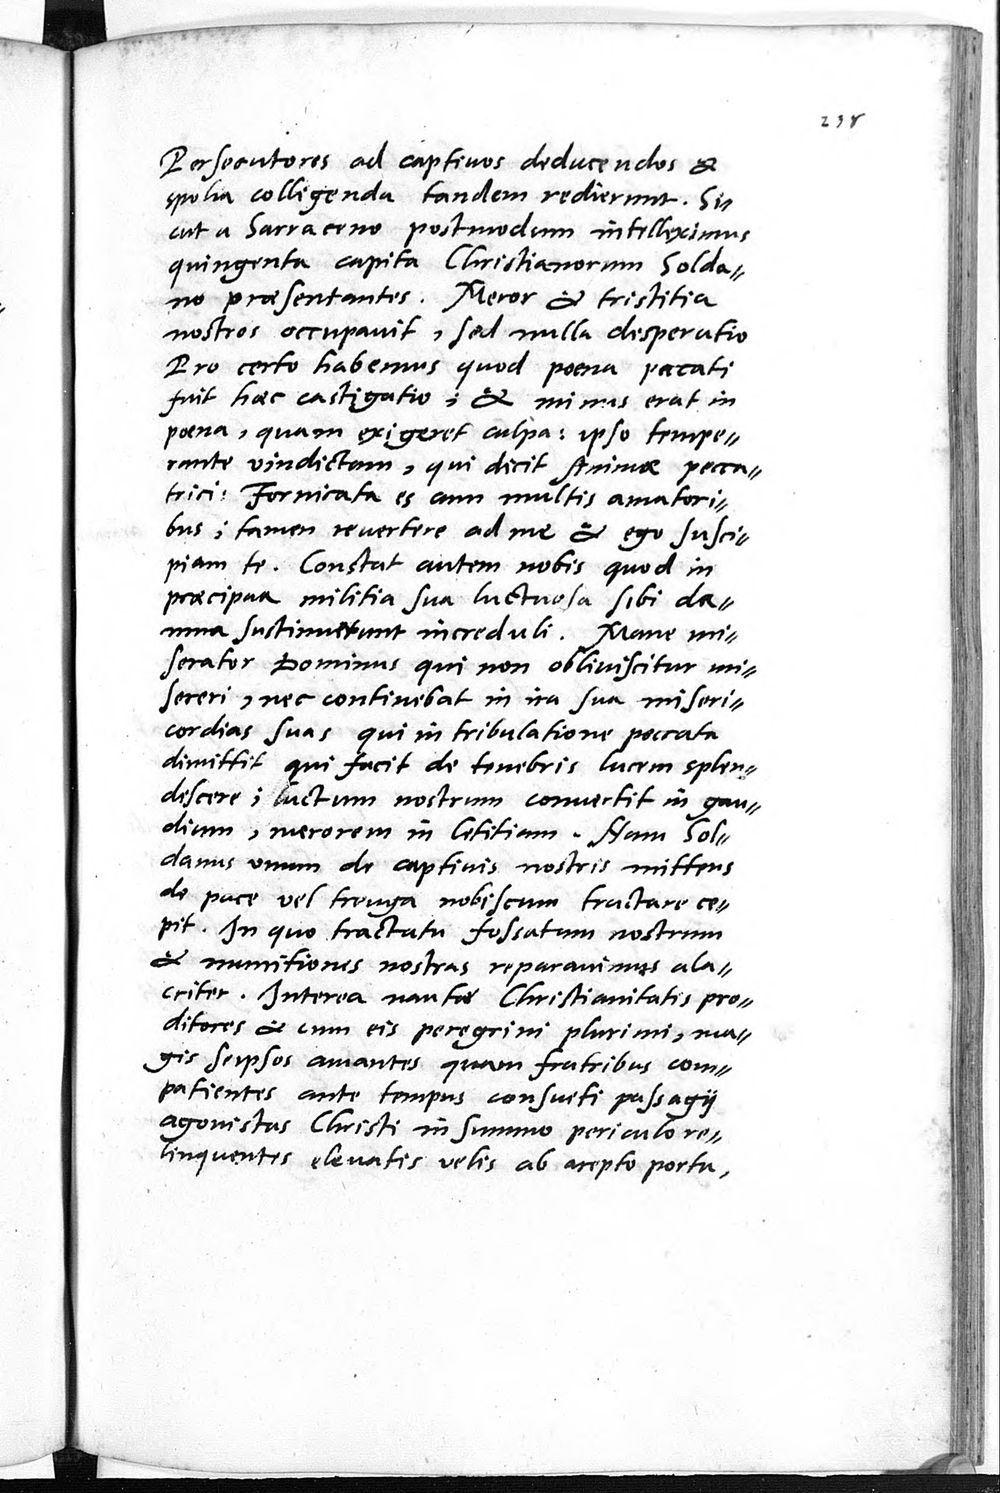 238
Persecutores ad captivos deducendos &
spolia colligenda tandem redierunt. Si=
cut a Sarraceno postmodum intelleximus
quingenta capita Christianorum Solda=
no præsentantes. Meror & tristitia
nostros occupauit, sed nulla desperatio
Pro certo habemus quod poena peccati
fuit hæc castigatio; & minus erat in
poena, quam exigeret culpa: ipso tempe=
rante vindictam, qui dicit Animæ pecca=
trici: Fornicata es cum multis amatori=
bus; tamen reuertere ad me & ego susci=
piam te. Constat autem nobis quod in
præcipua militia sua luctuosa sibi da=
mna sustinuerunt increduli. Mane mi=
serator Dominus qui non obliuiscitur mi=
sereri, nec continebat in ira sua miseri=
cordias suas qui in tribulatione peccata
dimittit qui facit de tenebris lucem splen=
descere; luctum nostrum conuertit in gau=
dium, merorem in letitiam. Nam Sol=
danus unum de captiuis nostris mittens
de pace vel treuga nobiscum tractare ce=
pit. In quo tractatu fossatum nostrum
& munitiones nostras reparauimus ala=
criter. Interea nautæ Christianitatis pro=
ditores & cum eis peregrini plurimi, ma=
gis seipsos amantes quam fratribus com=
patientes ante tempus consueti passagij
agonistas Christi in summo periculo re=
linquentes eleuatis velis ab arepto portu,